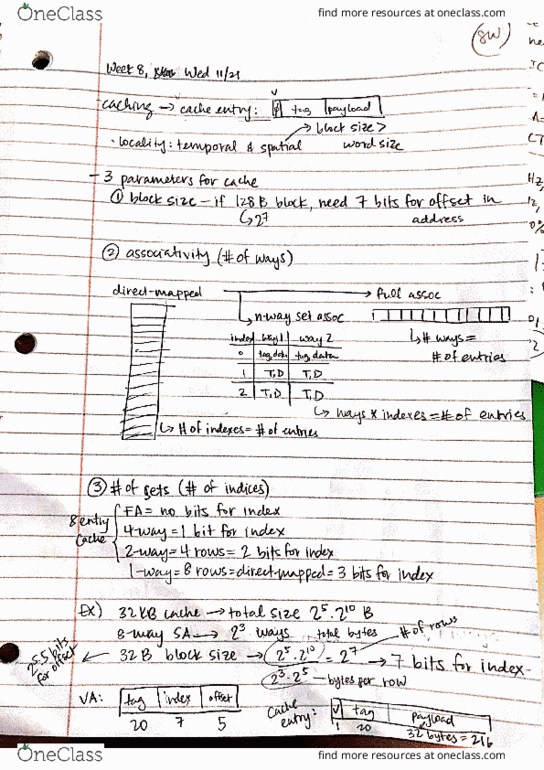 OneClass
find more resources at oneclass.com
8W
Week 8, Wed 11/21
caching → cache entry: V tag payload
block size >
word size
· locality: temporal & spatial
- 3 parameters for cache
① block size - if 128 B block, need 7 bits for offset in
address
↳ 2^7
② associativity (# of ways)
direct-mapped → full assoc
↳ n-way set assoc
index way 1 way 2
0 tag, data tag, data
1 T,D T,D
2 T,D T,D
↳ # ways =
# of entries
↳ ways x indexes = # of entries
↳ # of indexes = # of entries
③ # of sets (# of indices)
8 entry cache
FA = no bits for index
4-way = 1 bit for index
2-way = 4 rows = 2 bits for index
1-way = 8 rows = direct-mapped = 3 bits for index
Ex) 32 KB cache → total size 2^5 · 2^10 B
8-way SA → 2^3 ways total bytes # of rows
32 B block size → 2^5 · 2^10 / 2^3 · 2^5 = 2^7 → 7 bits for index
bytes per row
2^5, 5 bits for offset
VA: tag index offset
20 7 5
cache entry: V tag payload
1 20 32 bytes = 216
OneClass
find more resources at oneclass.com